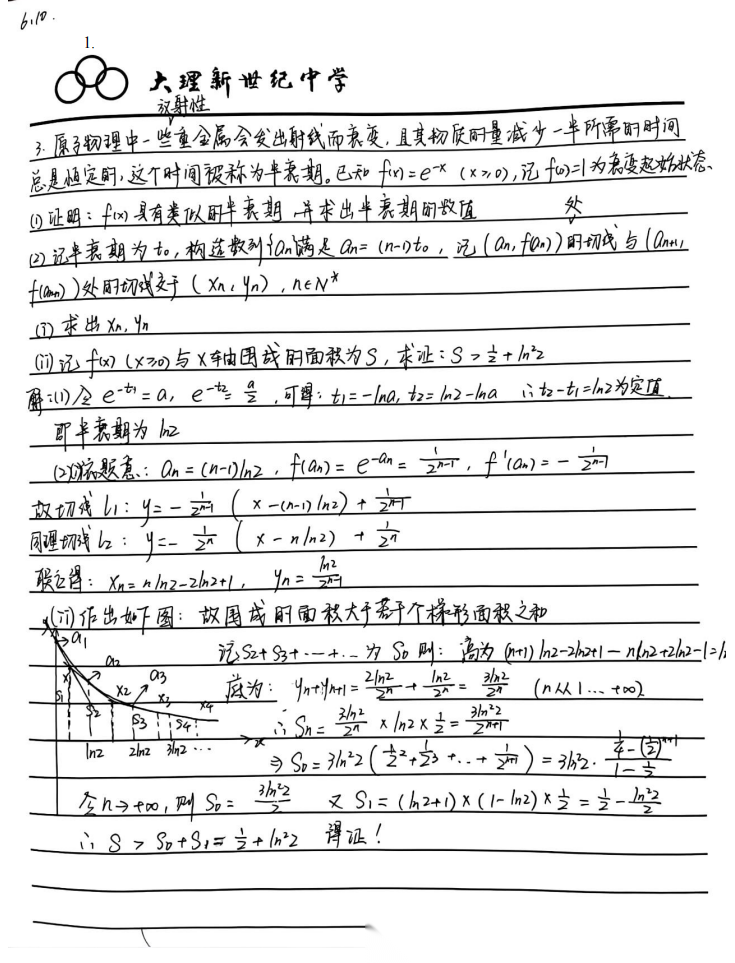 6.10.
1.
大理新世纪中学
放射性
3. 原子物理中一些重金属会发出射线而衰变，且其物质的量减少一半所需的时间
总是恒定的，这个时间被称为半衰期。已知 f(x)=e^{-x} (x≥0)，记 f(0)=1为衰变起始状态、
(1)证明：f(x)具有类似的半衰期，并求出半衰期的数值
处
(2)记半衰期为 t₀，构造数列{aₙ}满足 aₙ=(n-1)t₀，记(aₙ, f(aₙ))的切线与(aₙ₊₁,
f(aₙ₊₁))处的切线交于(xₙ, yₙ)，n∈N*
(i)求出 xₙ, yₙ
(ii)记 f(x) (x≥0)与x轴围成的面积为S，求证：S > 1/2 + ln²2
解：(1)令 e^{-t₁}=a，e^{-t₂}=a/2，可得：t₁=-lna, t₂=ln2-lna ∴t₂-t₁=ln2为定值
即半衰期为 ln2
(2)(i)依题意：aₙ=(n-1)ln2，f(aₙ)=e^{-aₙ}=1/2^{n-1}，f'(aₙ)=-1/2^{n-1}
故切线 l₁：y=-1/2^{n-1}(x-(n-1)ln2)+1/2^{n-1}
同理切线 l₂：y=-1/2ⁿ(x-nln2)+1/2ⁿ
联立得：xₙ=nln2-2ln2+1，yₙ=ln2/2^{n-1}
(ii)作出如下图：故围成的面积大于若干个梯形面积之和
y a₁ a₂ a₃
x₁ x₂ x₃ x₄
S₁ S₂ S₃ S₄ x
ln2 2ln2 3ln2 …
记S₂+S₃+…+… 为 S₀ 则：高为 (n+1)ln2-2ln2+1-nln2+2ln2-1=l
底为：yₙ+yₙ₊₁=2ln2/2ⁿ+ln2/2ⁿ=3ln2/2ⁿ (n从1…+∞)
∴Sₙ=3ln2/2ⁿ×ln2×1/2=3ln²2/2^{n+1}
⇒S₀=3ln²2(1/2²+1/2³+…+1/2^{n+1})=3ln²2·(1/4-(1/2)^{n+1})/(1-1/2)
令n→+∞，则 S₀=3ln²2/2 又 S₁=(ln2+1)×(1-ln2)×1/2=1/2-ln²2/2
∴S > S₀+S₁=1/2+ln²2 得证！